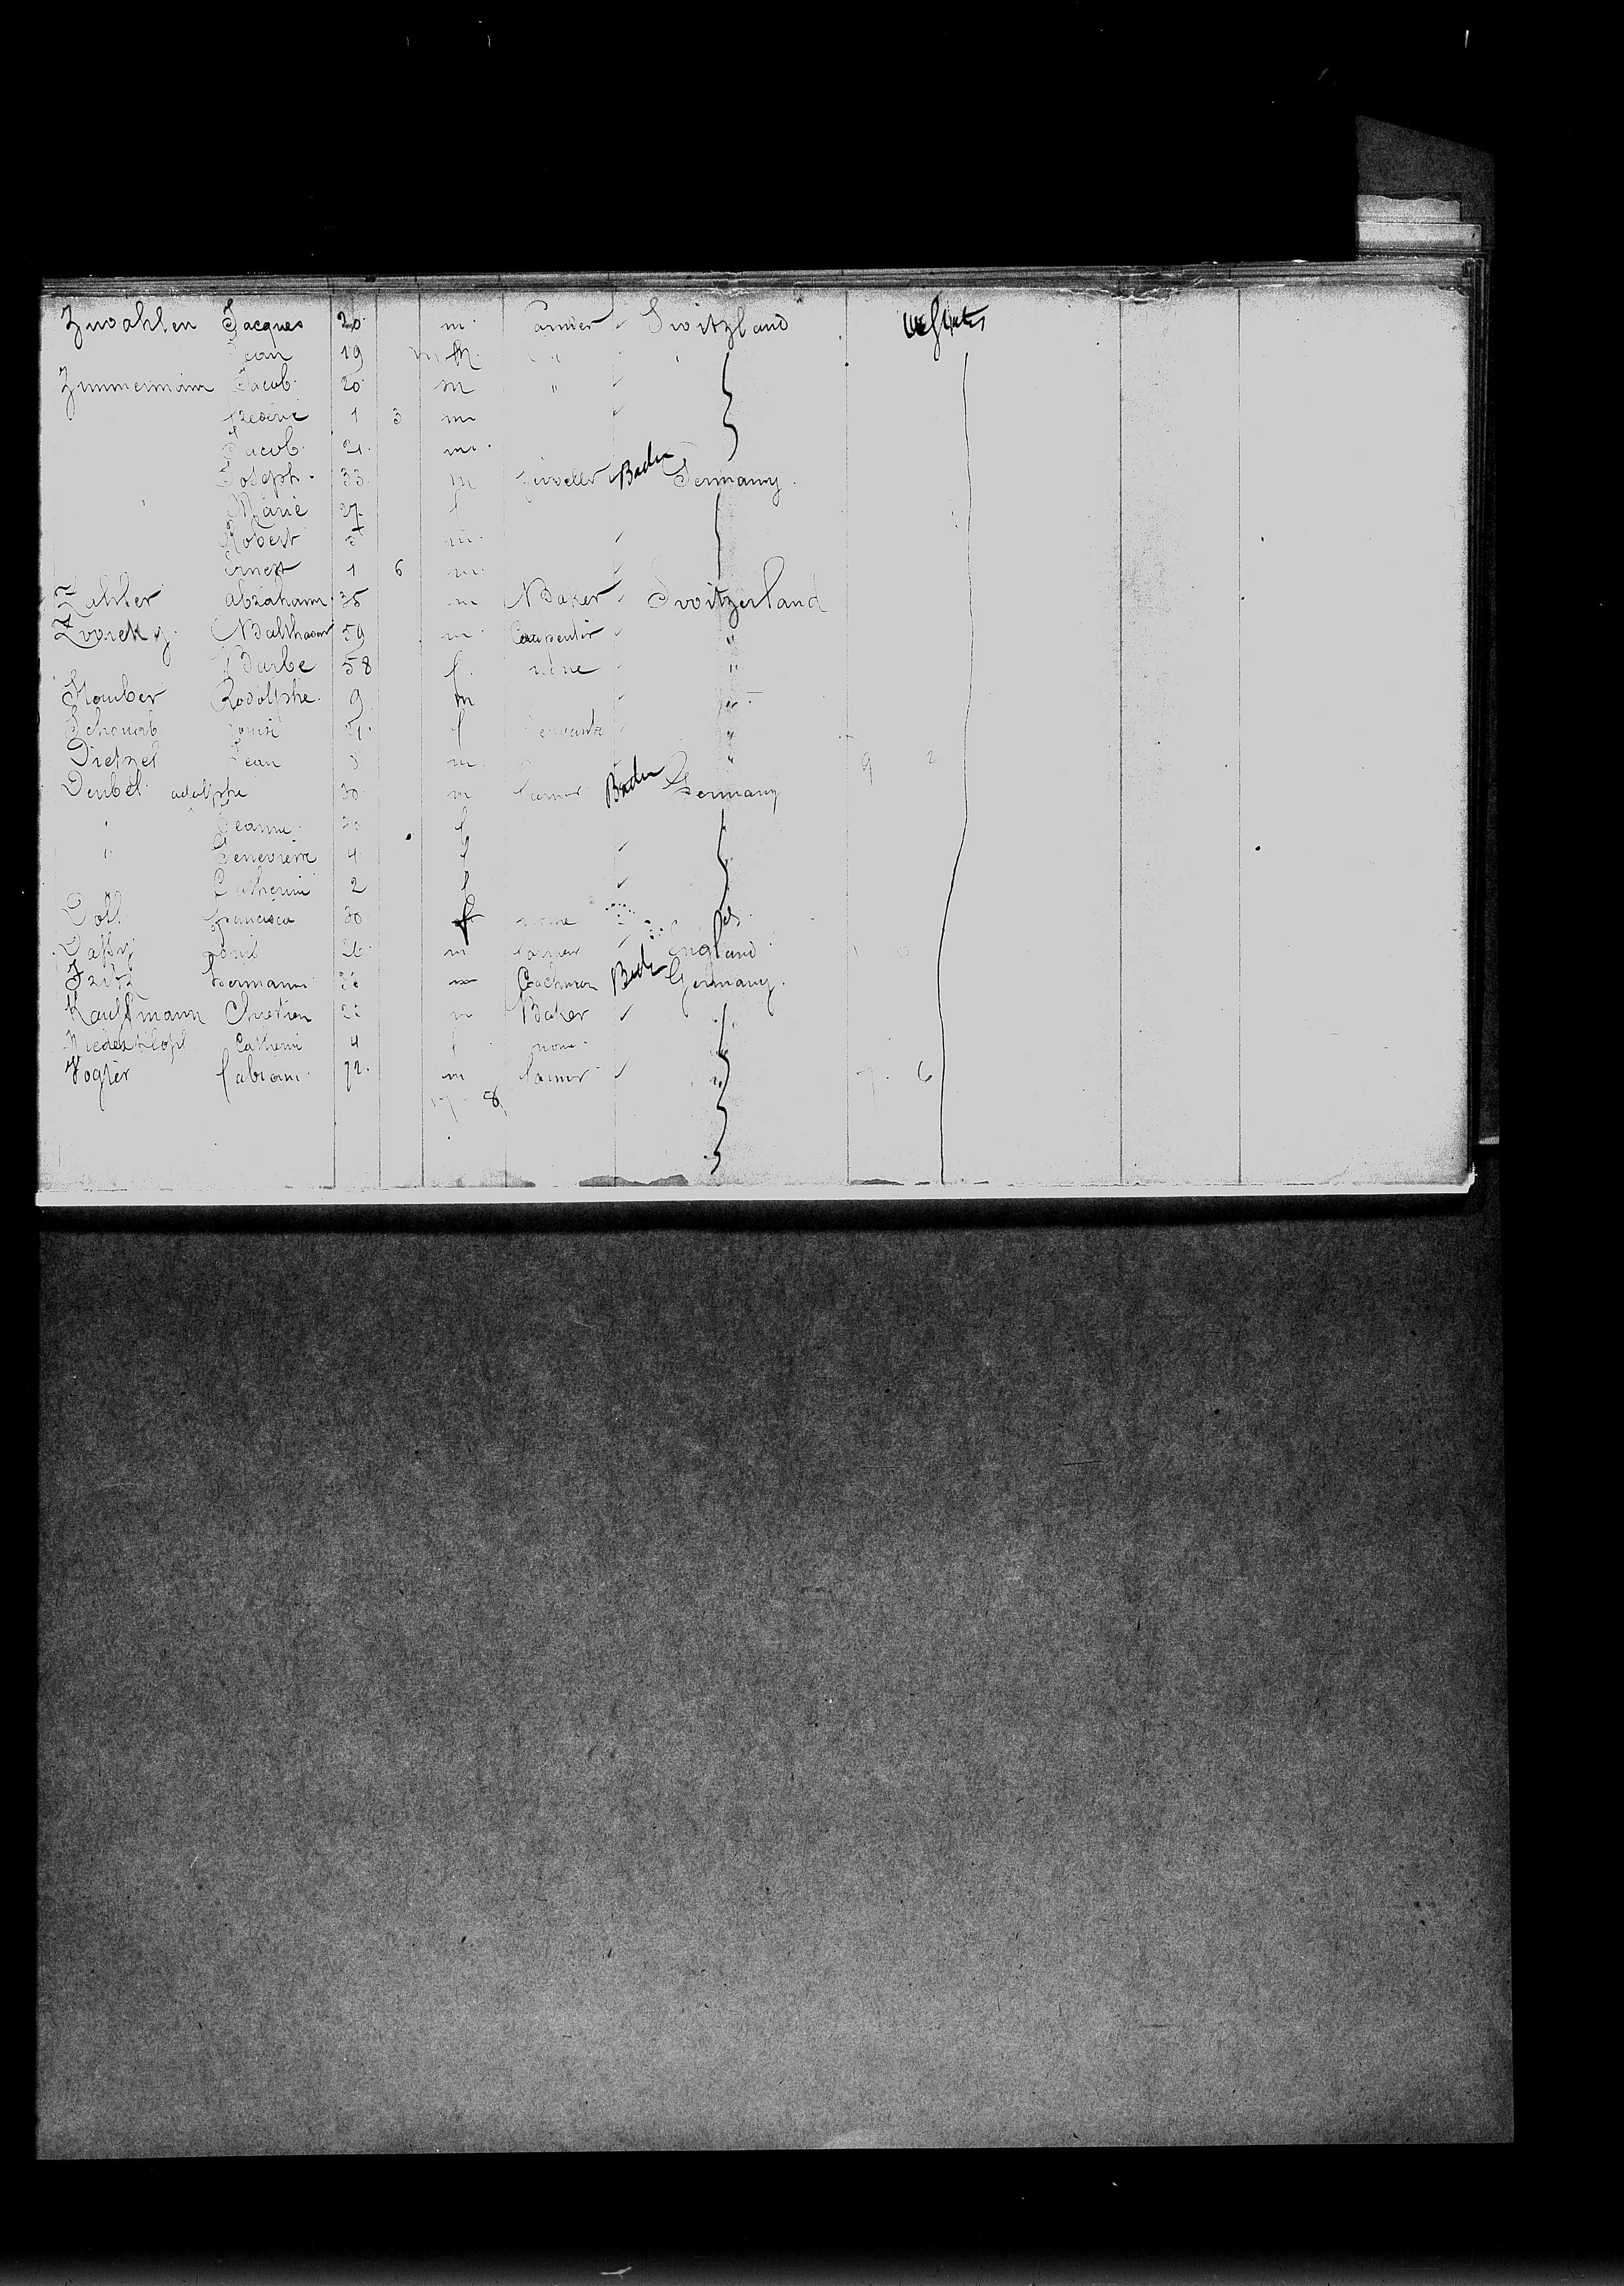 Zwahlen Jacques 20 m. farmer Switzland U States
Jean 19 m. "
Zimmermann Jacob 20 m "
frederic 1 3 m
Jacob 21. m.
Joseph. 33 m Jeweller Baden Germany.
Marie 27 f
Robert 5 m.
Ernest 1 6 m.
Zahler Abraham 35 m Baker Switzerland
Balthasar 59 m. Carpenter "
Barbe 58 f. none "
Rodolphe. 9 m "
Schouab Louise 21. f Servante "
Dietzel Jean m. " 9 2
Deubel adolphe 30 m farmer Baden Germany
" Jeanne. 30 f
" Genevieve 4 f
Catherine 2 f
Doll francisca 30 f none do.
Louis 26. m farmer England
Fritz hermann m Coachman Baden Germany.
Kauffmann Chretien m Baker
Catherine 4 f none.
Vogler fabian 72. m farmer " 7. 6
17. 8